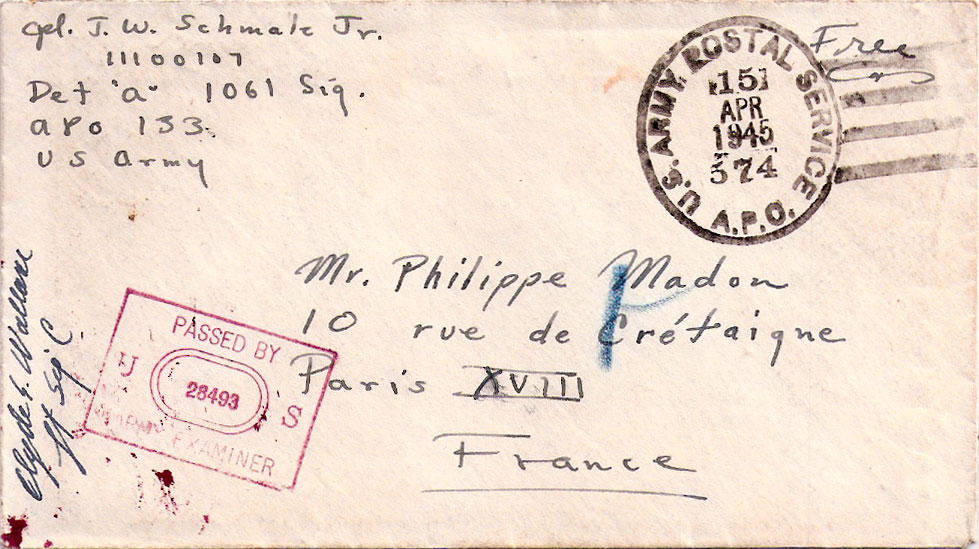 Cpl. J. W. Schmalz Jr.
11100107
Det "a" 1061 Sig.
aPo 133
US Army
U.S. ARMY POSTAL SERVICE
15
APR
1945
574
A.P.O.
Free
Mr. Philippe Madon
10 rue de Crétaigne
Paris XVIII
France
PASSED BY
U 28493 S
ARMY EXAMINER
Clyde E. Wallace
Sig C